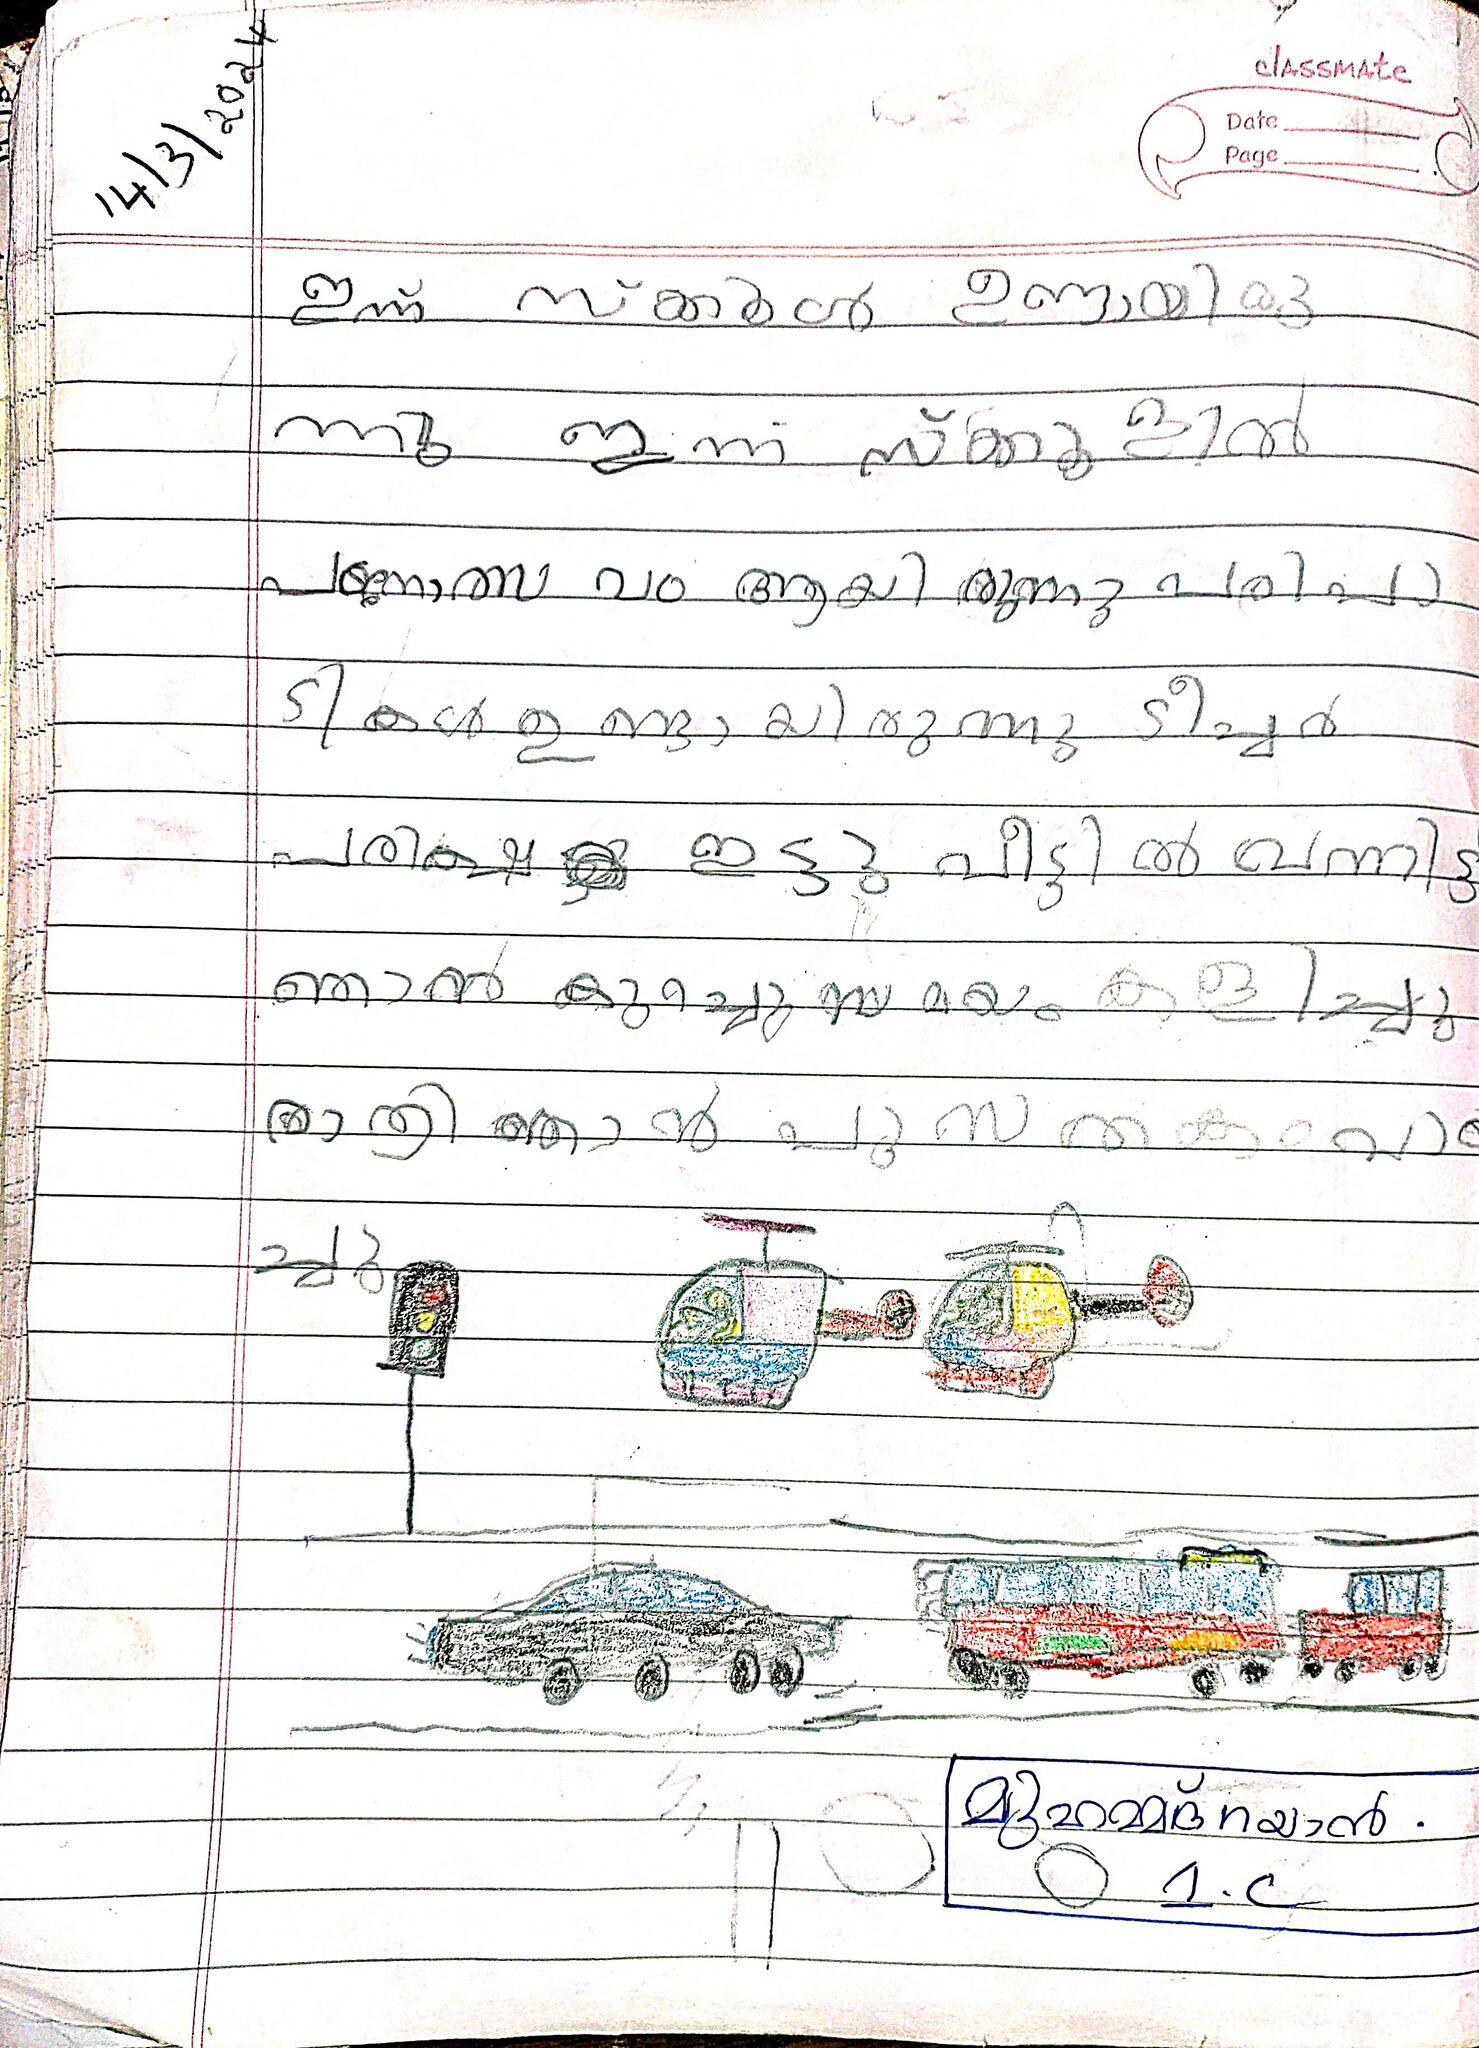 14/3/2024
classmate
Date
Page
ഇന്ന് സ്ക്കൂൾ ഉണ്ടായിരു
ന്നു ഇന്ന് സ്ക്കൂളിൽ
പഠനോത്സവം ആയിരുന്നു പരിപാ
ടികൾ ഉണ്ടായിരുന്നു ടീച്ചർ
ഇട്ടു വീട്ടിൽ വന്നിട്ടു
ഞാൻ കുറച്ചു സമയം കളിച്ചു
രാത്രി ഞാൻ പുസതകം വായി
ച്ചു
മുഹമ്മദ് നയാൻ.
1.C